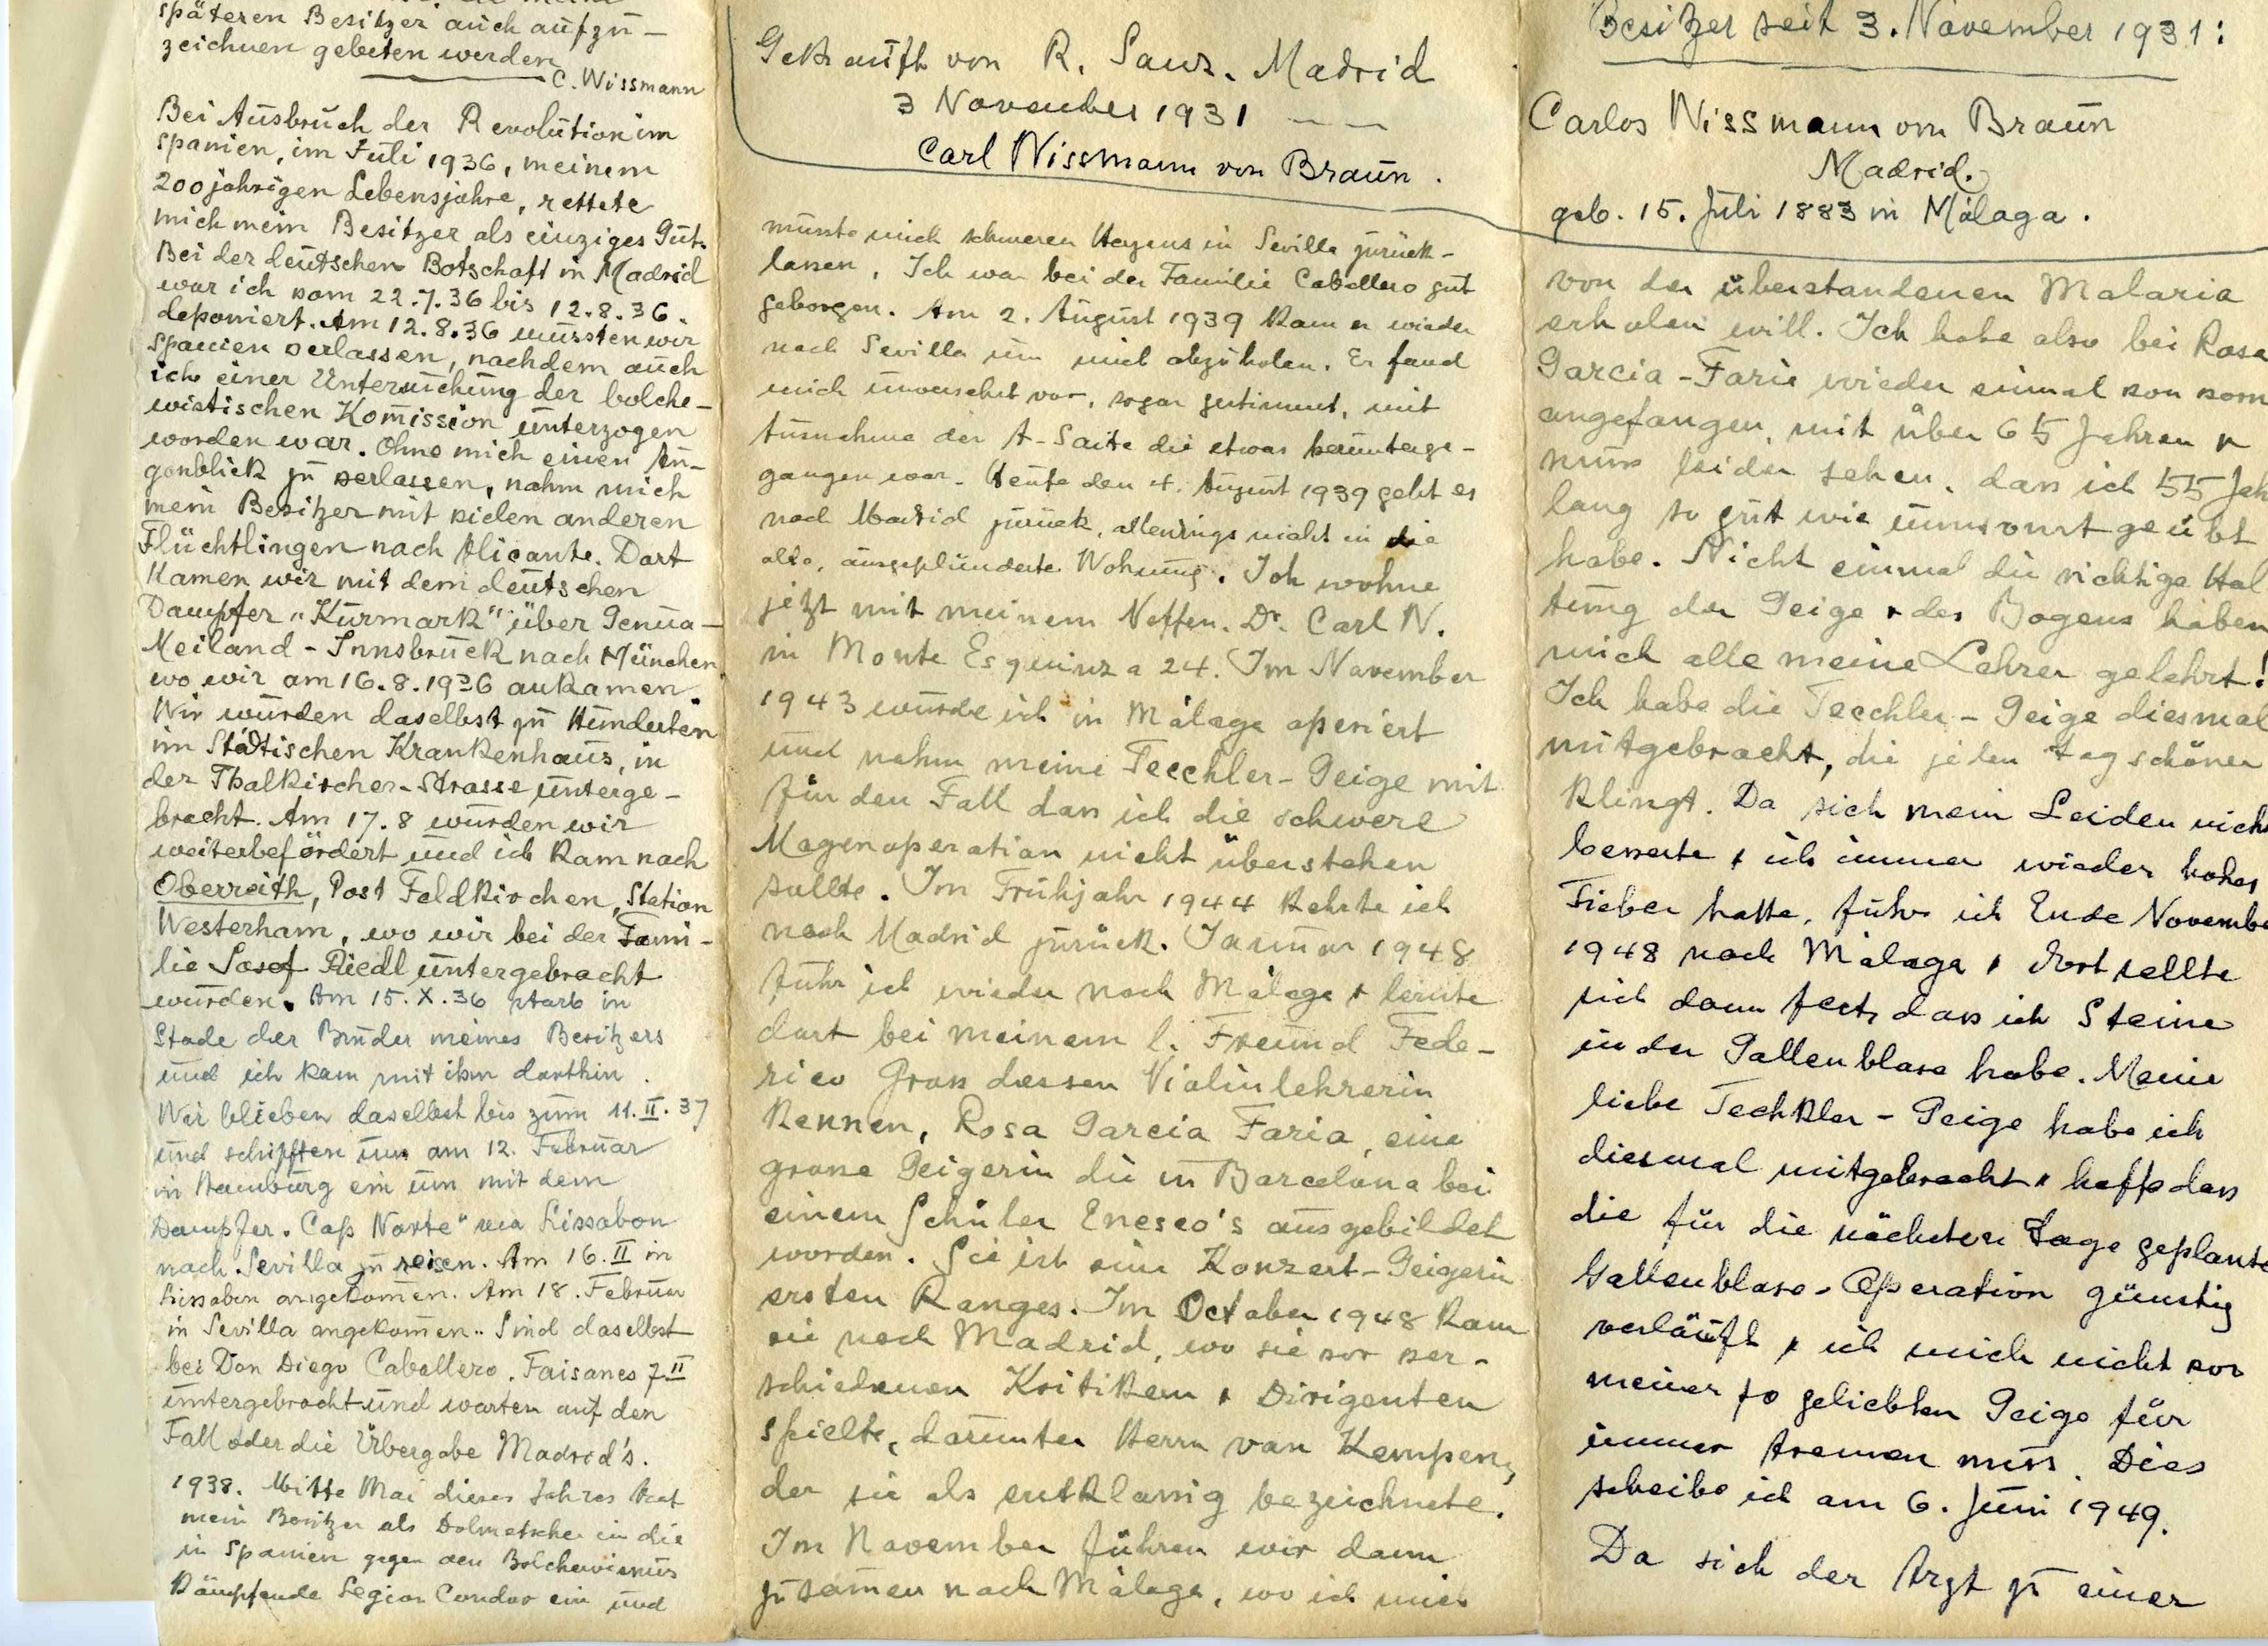 späteren Besitzer auch aufzu-
zeichnen gebeten werden
C. Wissmann
Bei Ausbruch der Revolution im
Spanien, im Juli 1936, meinem
200 jährigen Lebensjahre, rettete
mich mein Besitzer als einziges Gut.
Bei der deutschen Botschaft in Madrid
war ich vom 22.7.36 bis 12.8.36.
deponiert. Am 12.8.36 mussten wir
Spanien verlassen, nachdem auch
ich einer Untersuchung der bolche-
wistischen Komission unterzogen
worden war. Ohne mich einen Au-
genblick zu verlassen, nahm mich
mein Besitzer mit vielen anderen
Flüchtlingen nach Alicante. Dort
kamen wir mit dem deutschen
Dampfer "Kurmark" über Genua-
Meiland - Innsbruck nach München
wo wir am 16.8.1936 ankamen.
Wir wurden daselbst zu Hunderten
im Städtischen Krankenhaus, in
der Thalkircher-Strasse unterge-
bracht. Am 17.8 wurden wir
weiterbefördert und ich kam nach
Oberreith, Post Feldkirchen, Station
Westerham, wo wir bei der Fami-
lie Josef Riedl untergebracht
wurden. Am 15.X.36 starb in
Stade der Bruder meines Besitzers
und ich kam mit ihm dorthin.
Wir blieben daselbst bis zum 11.II.37
und schifften uns am 12. Februar
in Hamburg ein um mit dem
Dampfer "Cap Norte" via Lissabon
nach Sevilla zu reisen. Am 16.II in
Lissabon angekommen. Am 18. Februar
in Sevilla angekommen. Sind daselbst
bei Don Diego Caballero. Faisanes 7 II
untergebracht und warten auf den
Fall oder die Übergabe Madrid's.
1938. Mitte Mai dieses Jahres trat
mein Besitzer als Dolmetscher in die
in Spanien gegen den Bolchewismus
kämpfende Legion Condor ein und
Gekauft von R. Sanz. Madrid
3 November 1931
Carl Wissmann von Braun.
musste mich schweren Herzens in Sevilla zurück-
lassen. Ich war bei der Familie Caballero gut
geborgen. Am 2. August 1939 kam er wieder
nach Sevilla um mich abzuholen. Er fand
mich unversehrt vor, sogar gestimmt, mit
Ausnahme der A-Saite die etwas herunterge-
gangen war. Heute den 4. August 1939 geht es
nach Madrid zurück, allerdings nicht in die
alte, ausgeplünderte Wohnung. Ich wohne
jetzt mit meinem Neffen. Dr. Carl W.
in Monte Esquinza 24. Im November
1943 wurde ich in Málaga operiert
und nahm meine Tecchler-Geige mit
für den Fall dass ich die schwere
Magenoperation nicht überstehen
sollte. Im Frühjahr 1944 kehrte ich
nach Madrid zurück. Januar 1948
fuhr ich wieder nach Málaga & lernte
dort bei meinem l. Freund Fede-
rico Gross dessen Violinlehrerin
kennen, Rosa Garcia Faria, eine
grosse Geigerin die in Barcelona bei
einem Schüler Enesco's ausgebildet
worden. Sie ist eine Konzert-Geigerin
ersten Ranges. Im October 1948 kam
sie nach Madrid, wo sie vor ver-
schiedenen Kritikern & Dirigenten
spielte, darunter Herrn van Kempen,
der sie als erstklassig bezeichnete.
Im November fuhren wir dann
zusamen nach Málaga, wo ich mich
Besitzer seit 3. November 1931:
Carlos Wissmann von Braun
Madrid.
geb. 15. Juli 1883 in Málaga.
von der überstandenen Malaria
erholen will. Ich habe also bei Rosa
Garcia-Faria wieder einmal von vorn
angefangen, mit über 65 Jahren &
muss leider sehen, dass ich 55 Jah
lang so gut wie umsonst geübt
habe. Nicht einmal die richtige Hal
tung der Geige & des Bogens haben
mich alle meine Lehrer gelehrt!
Ich habe die Tecchler-Geige diesmal
mitgebracht, die jeden Tag schöner
klingt. Da sich mein Leiden nich
besserte & ich immer wieder hohes
Fieber hatte, fuhr ich Ende Novembe
1948 nach Málaga & dort stellte
sich dann fest, dass ich Steine
in der Gallenblase habe. Meine
liebe Techkler-Geige habe ich
diesmal mitgebracht & hoffe dass
die für die nächsten Tage geplante
Gallenblase-Operation günstig
verläuft & ich mich nicht von
meiner so geliebten Geige für
immer trennen muss. Dies
schreibe ich am 6. Juni 1949.
Da sich der Arzt zu einer